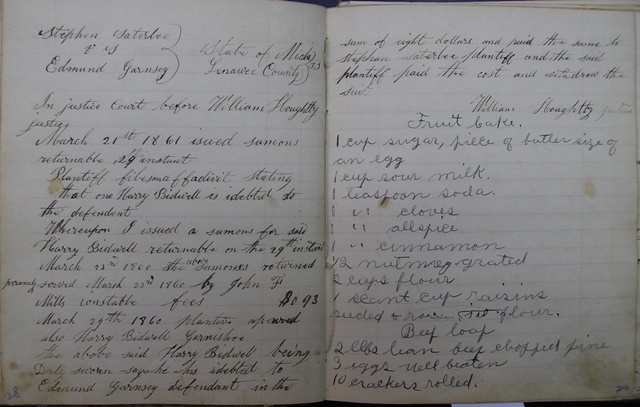 Stephen Saterlee
vs
Edmund Garnsey
State of Mich
Lenawee County } SS
In justice Court before William Houghtby
justice
March 21st 1861 issued sumons
returnable 29th instant
Plantiff files affadivit stating
that one Harry Bidwell is idebted to
the defendent
Whereupon I issued a sumons for said
Harry Bidwell returnable on the 29th instant
March 23rd 1860 the above sumones returned
personaly served March 23rd 1860 by John F
Mills constable fees $0.93
March 29th 1860 planters apeared
also Harry Bidwell Garnishee
the above said Harry Bidwell being
Duly sworn says he is idebted to
Edmund Garnsey defendant in the
28
sum of eight dollars and paid the same to
stephen saterlee plantiff and the said
plantiff paid the cost and withdrew the
suit
William Houghtby justice
Fruit cake.
1 cup sugar, piece of butter size of
an egg
1 cup sour milk.
1 teaspoon soda.
1 " cloves
1 " allspice
1 " cinnamon
1/2 nutmeg grated
2 cups flour
1 scant cup raisins
seeded & flour.
Beef loaf
2 lbs lean beef chopped fine
3 eggs well beaten
10 crackers rolled.